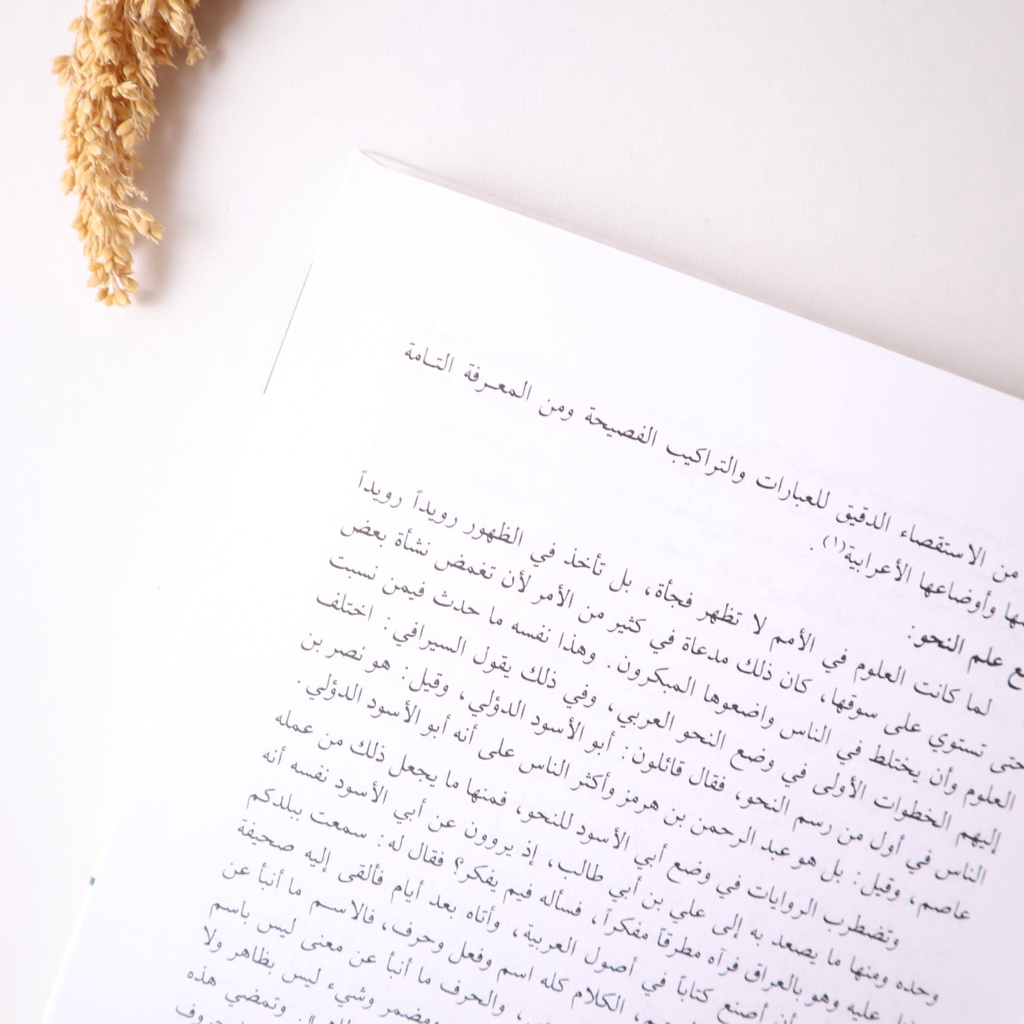 من الاستقصاء الدقيق للعبارات والتراكيب الفصيحة ومن المعـرفة التـامة
وأوضاعها الأعرابية(١) .
علم النحو:
لما كانت العلوم في الأمم لا تظهر فجأة، بل تأخذ في الظهور رويداً رويداً
حتى تستوي على سوقها، كان ذلك مدعاة في كثير من الأمر لأن تغمض نشأة بعض
العلوم وأن يختلط في الناس واضعوها المبكرون. وهذا نفسه ما حدث فيمن نسبت
إليهم الخطوات الأولى في وضع النحو العربي، وفي ذلك يقول السيرافي: اختلف
الناس في أول من رسم النحو، فقال قائلون: أبو الأسود الدؤلي، وقيل: هو نصر بن
عاصم، وقيل: بل هو عبد الرحمن بن هرمز وأكثر الناس على أنه أبو الأسود الدؤلي.
وتضطرب الروايات في وضع أبي الأسود للنحو، فمنها ما يجعل ذلك من عمله
وحده ومنها ما يصعد به إلى علي بن أبي طالب، إذ يروون عن أبي الأسود نفسه أنه
عليه وهو بالعراق فرآه مطرقاً مفكراً، فسأله فيم يفكر؟ فقال له: سمعت ببلدكم
أن أصنع كتاباً في أصول العربية، وأتاه بعد أيام فألقى إليه صحيفة
الكلام كله اسم وفعل وحرف، فالاسم ما أنبأ عن
والحرف ما أنبأ عن معنى ليس باسم
ومضمر وشيء ليس بظاهر ولا
وتمضي هذه